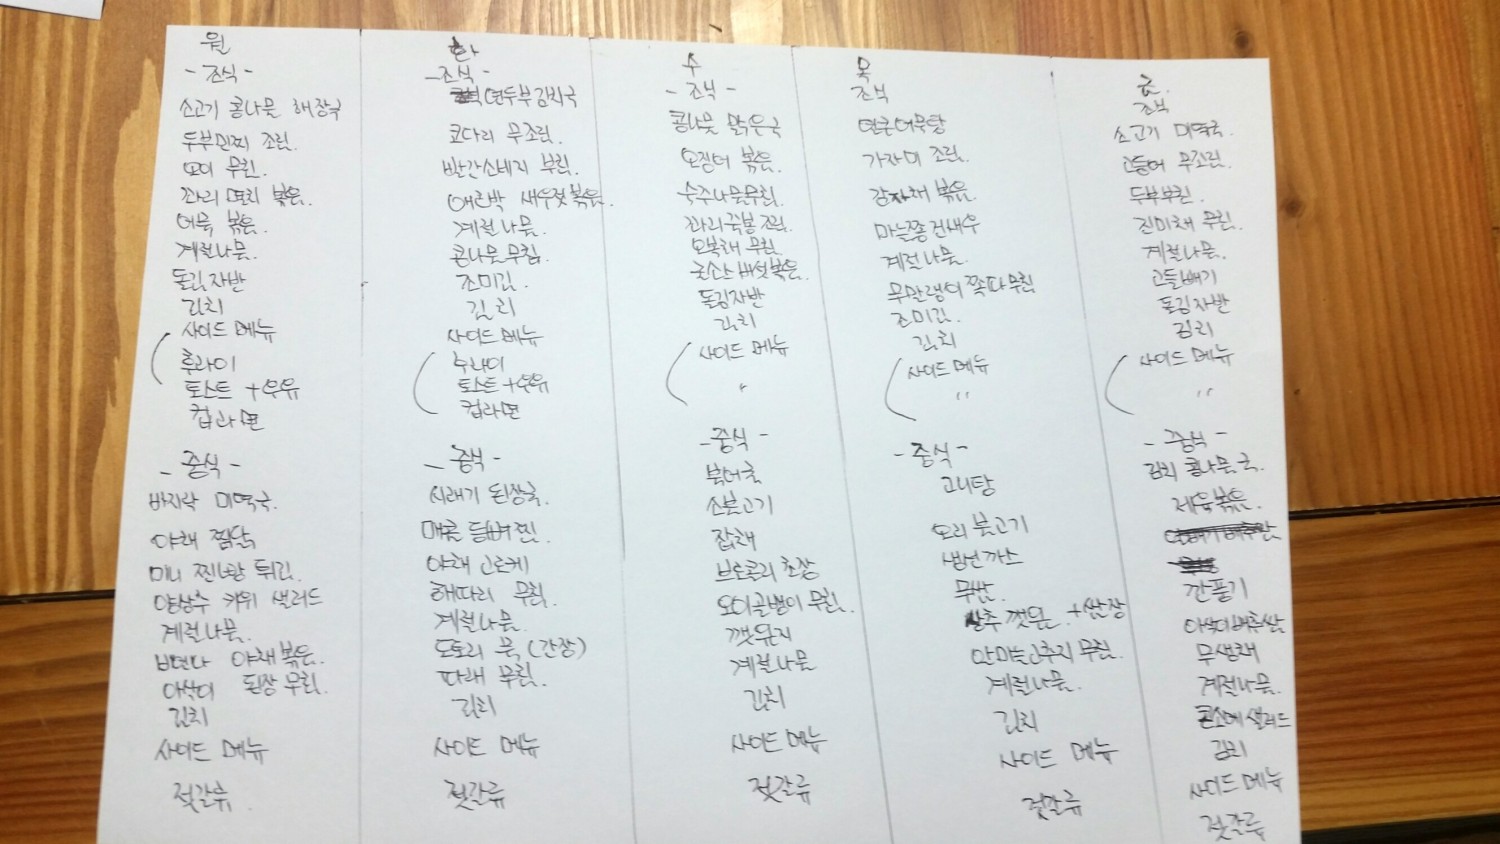 월
- 조식 -
소고기 콩나물 해장국
두부민찌 조림.
오이 무침.
꽈리 멸치 볶음.
어묵 볶음.
계절나물.
돌김자반
김치
사이드 메뉴
후라이
토스트 + 우유
컵라면
- 중식 -
바지락 미역국.
야채 찜닭
미니 찐만두 튀김.
양상추 키위 샐러드
계절나물.
비엔나 야채볶음.
아삭이 된장 무침.
김치
사이드 메뉴
젓갈류.
화
- 조식 -
연두부김치국
코다리 무조림.
빨간소세지 부침.
애호박 새우젓볶음.
계절나물.
콩나물무침.
조미김.
김치
사이드 메뉴
후라이
토스트 + 우유
컵라면
- 중식 -
시래기 된장국.
매콤 등뼈찜.
야채 고로케
해파리 무침.
계절나물.
도토리 묵 (간장)
파래 무침.
김치
사이드 메뉴
젓갈류
수
- 조식 -
콩나물 맑은국
오징어 볶음.
숙주나물무침.
꽈리 조림.
무침.
굴소스버섯볶음.
돌김자반
김치
사이드 메뉴
〃
- 중식 -
북어국
소불고기
잡채
브로콜리 초장
오이골뱅이 무침.
깻잎지
계절나물
김치
사이드 메뉴
젓갈류
목
조식
어묵탕
가자미 조림.
감자채 볶음.
마늘쫑건새우
계절나물.
무말랭이 쪽파무침
조미김.
김치
사이드 메뉴
〃
- 중식 -
고니탕
오리 불고기
생선까스
무쌈.
상추 깻잎. + 쌈장
고추지 무침.
계절나물.
김치
사이드 메뉴
젓갈류
금.
조식
소고기 미역국.
고등어 무조림.
두부부침.
진미채 무침.
계절나물.
고들빼기
돌김자반
김치
사이드 메뉴
〃
- 중식 -
김치 콩나물국.
제육볶음.
깐풍기
무생채
계절나물.
샐러드
김치
사이드 메뉴
젓갈류